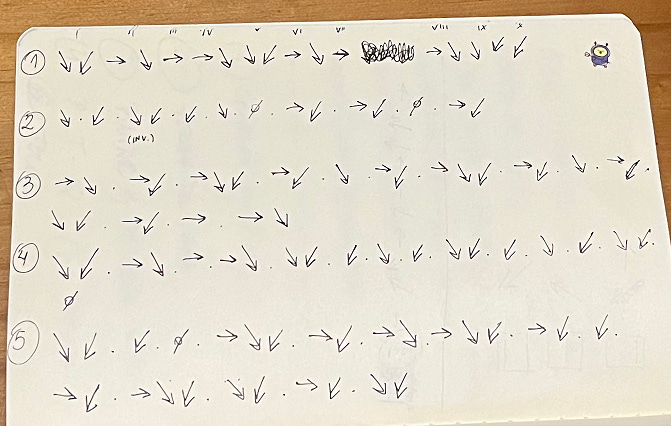 I II III IV V VI VII VIII IX X
① ↘↙ → ↘ → → ↘ ↘↙ → ↘ → → ↘ ↘ ↙ ↙
② ↘ . ↙ . ↘↙ . ↙ . ↘ . ø . →↙ . →↙ . ø . →↙
(INV.)
③ →↘ . →↙ . →↘↙ . →↙ . ↘ . →↙ . →↘↙ . →↙ . ↘ . →↙ .
↘↙ . →↙ . → . →↘
④ ↘↙ . →↘ . → . →↘ . ↘↙ . ↙ . ↘ . ↙ . ↘↙ . ↙ . ↘ . ↙ . ↘↙ .
ø
⑤ ↘↙ . ↙ . ø . →↘↙ . →↙ . →↘ . →↘↙ . →↙ . ↙ .
→↙ . →↘↙ . ↘↙ . →↙ . ↘↙